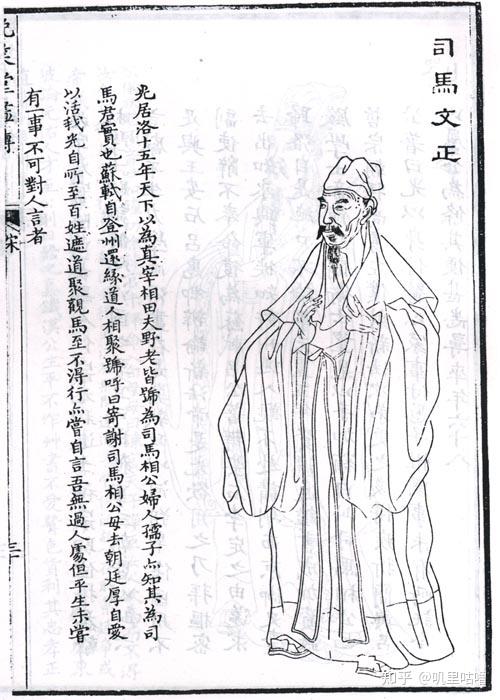 司馬文正
兆居洛十五年天下以為真宰相田夫野老皆號為司馬相公婦人孺子亦知其為司
馬君實也蘇軾自登州還緣道人相聚號呼曰寄謝司馬相公毋去朝廷厚自愛
以活我光自所至百姓遮道聚觀馬至不得行亦嘗自言吾無過人處但平生未嘗
有一事不可對人言者
晚笑堂畫傳
宋
三十
知乎 @叽里咕噜